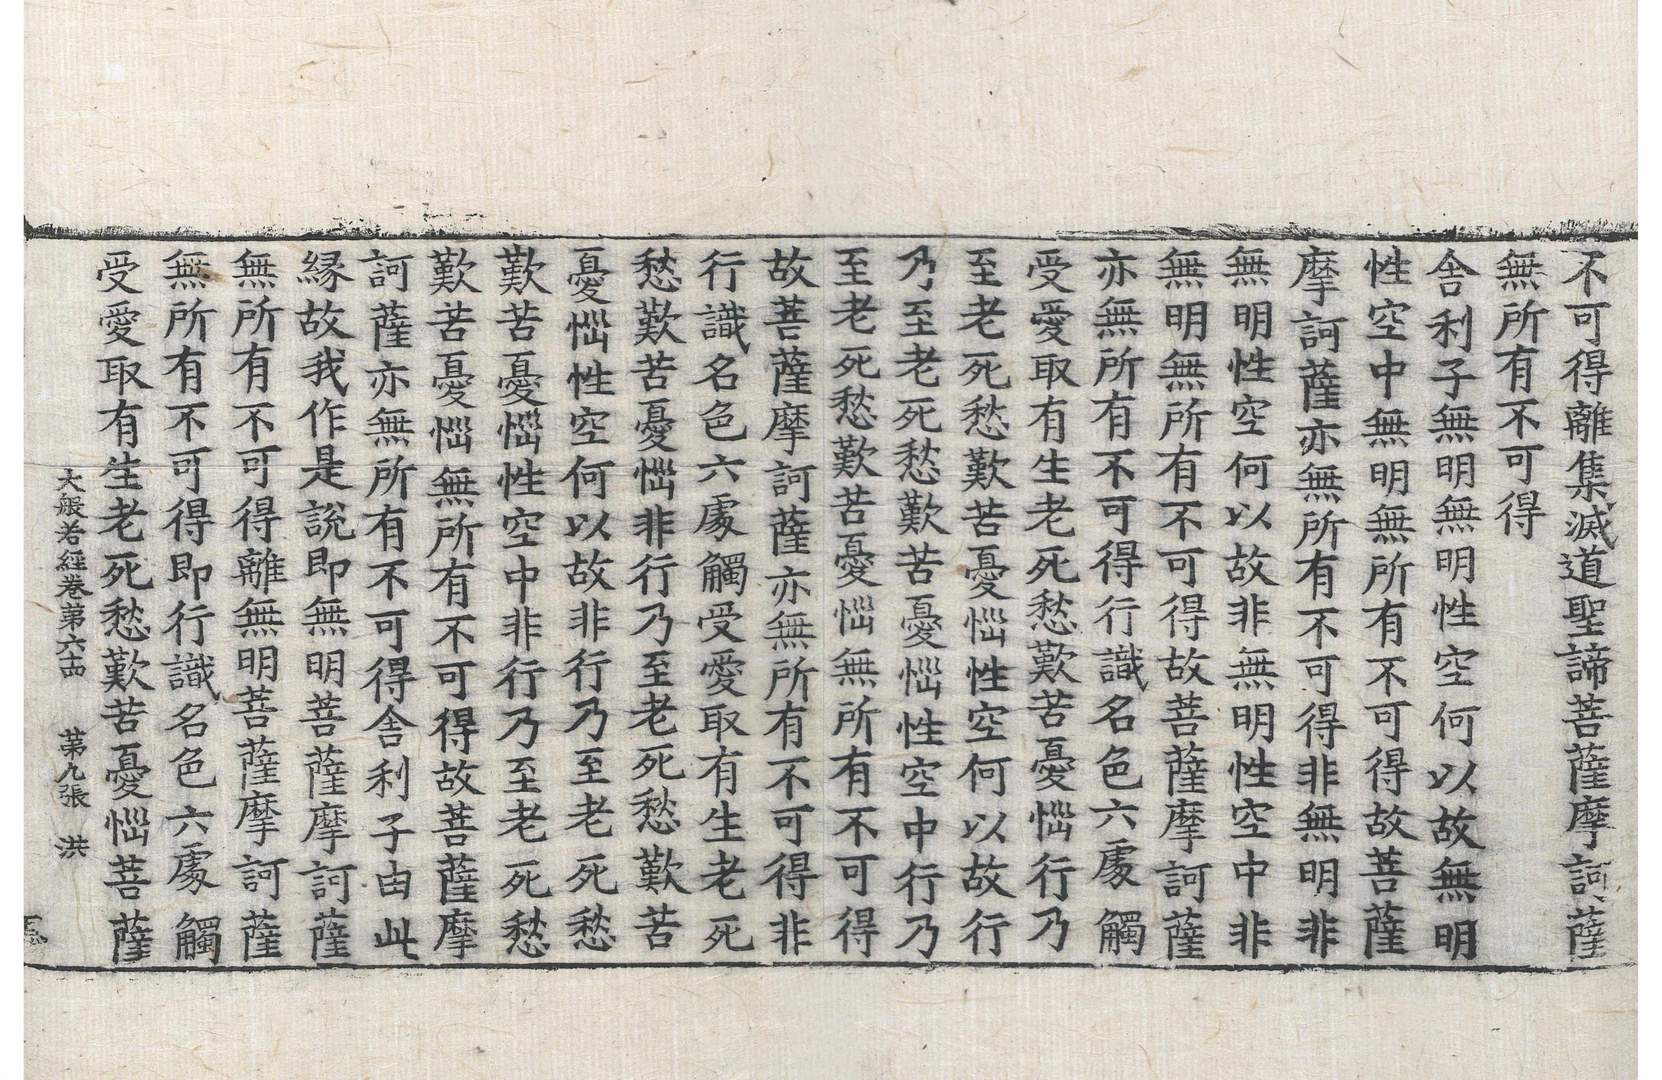 不可得離集滅道聖諦菩薩摩訶薩
無所有不可得
舍利子無明無明性空何以故無明
性空中無明無所有不可得故菩薩
摩訶薩亦無所有不可得非無明非
無明性空何以故非無明性空中非
無明無所有不可得故菩薩摩訶薩
亦無所有不可得行識名色六處觸
受愛取有生老死愁歎苦憂惱行乃
至老死愁歎苦憂惱性空何以故行
乃至老死愁歎苦憂惱性空中行乃
至老死愁歎苦憂惱無所有不可得
故菩薩摩訶薩亦無所有不可得非
行識名色六處觸受愛取有生老死
愁歎苦憂惱非行乃至老死愁歎苦
憂惱性空何以故非行乃至老死愁
歎苦憂惱性空中非行乃至老死愁
歎苦憂惱無所有不可得故菩薩摩
訶薩亦無所有不可得舍利子由此
緣故我作是說即無明菩薩摩訶薩
無所有不可得離無明菩薩摩訶薩
無所有不可得即行識名色六處觸
受愛取有生老死愁歎苦憂惱菩薩
大般若經卷第六十四 第九張 洪